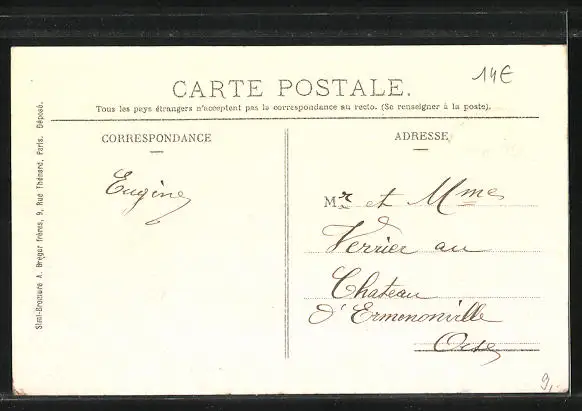 14€
CARTE POSTALE.
Tous les pays étrangers n'acceptent pas la correspondance au recto. (Se renseigner à la poste).
CORRESPONDANCE
ADRESSE
Eugène
Mr et Mme
Verrier au
Chateau
d'Ermenonville
Oise
Simili-Bromure A. Breger frères, 9, Rue Thénard, Paris. Déposé.
9,-